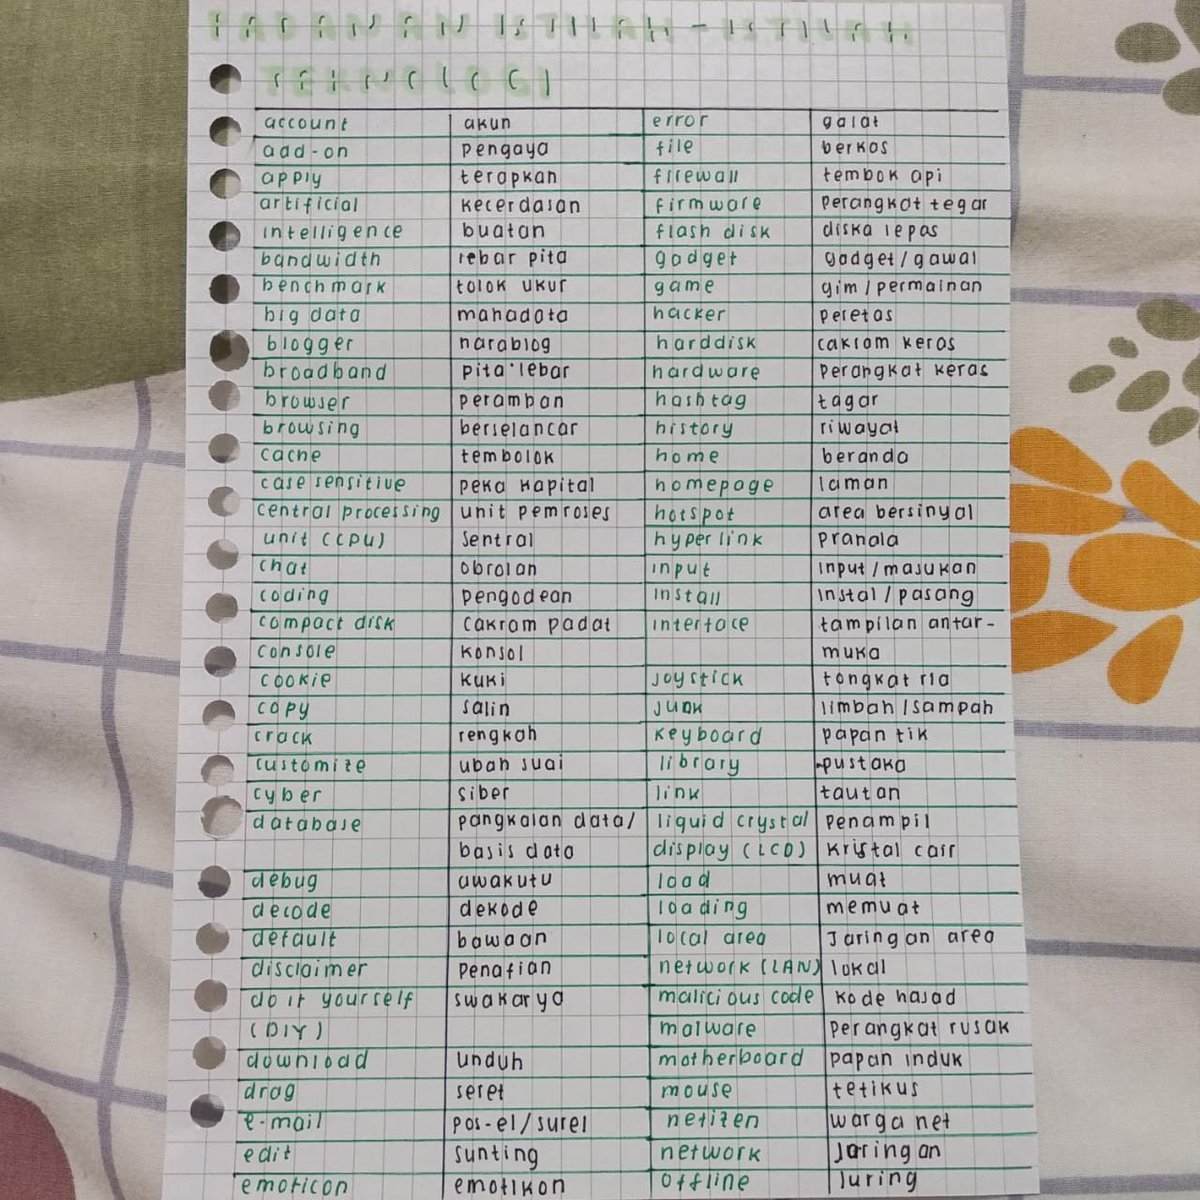 PADANAN ISTILAH - ISTILAH
TEKNOLOGI
account akun
add-on pengaya
apply terapkan
artificial kecerdasan
intelligence buatan
bandwidth lebar pita
benchmark tolok ukur
big data mahadata
blogger narablog
broadband pita lebar
browser peramban
browsing berselancar
cache tembolok
case sensitive peka kapital
central processing unit pemroses
unit (CPU) sentral
chat obrolan
coding pengodean
compact disk cakram padat
console konsol
cookie kuki
copy salin
crack rengkah
customize ubah suai
cyber siber
database pangkalan data/
basis data
debug awakutu
decode dekode
default bawaan
disclaimer penafian
do it yourself swakarya
(DIY)
download unduh
drag seret
e-mail pos-el/surel
edit sunting
emoticon emotikon
error galat
file berkas
firewall tembok api
firmware perangkat tegar
flash disk diska lepas
gadget gadget/gawai
game gim/permainan
hacker peretas
harddisk cakram keras
hardware perangkat keras
hashtag tagar
history riwayat
home beranda
homepage laman
hotspot area bersinyal
hyperlink pranala
input input/masukan
install instal/pasang
interface tampilan antar-
muka
joystick tongkat ria
junk limbah/sampah
keyboard papan tik
library pustaka
link tautan
liquid crystal penampil
display (LCD) kristal cair
load muat
loading memuat
local area Jaringan area
network (LAN) lokal
malicious code kode hasad
malware perangkat rusak
motherboard papan induk
mouse tetikus
netizen warga net
network Jaringan
offline luring